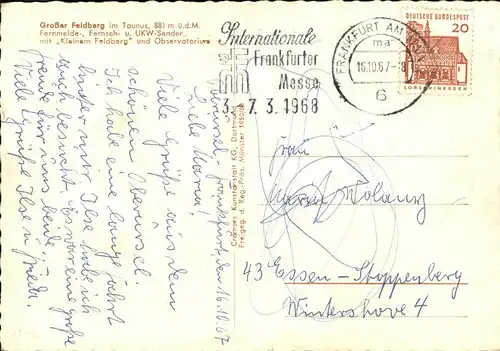 Großer Feldberg im Taunus, 881 m ü.d.M.
Fernmelde-, Fernseh- u. UKW-Sender
mit „Kleinem Feldberg" und Observatorium
Oberursel-Frankfurt, den 16.10.67
Liebe Maria!
Viele Grüße aus dem
schönen Oberursel.
Ich habe eine lange Fahrt
hinter mir Ilse habe ich
auch besucht. Es war eine große
Freude für uns beide.
Viele Grüße Ilse u. Frieda.
Cramers Kunstanstalt KG, Dortmund
Freigeg. d. Reg.-Präs. Münster
Internationale
Frankfurter
Messe
3.-7.3.1968
FRANKFURT AM
ma
16.10.67-18
6
DEUTSCHE BUNDESPOST
20
LORSCH/HESSEN
Frau
Maria Wolany
43 Essen-Stoppenberg
Wintershove 4